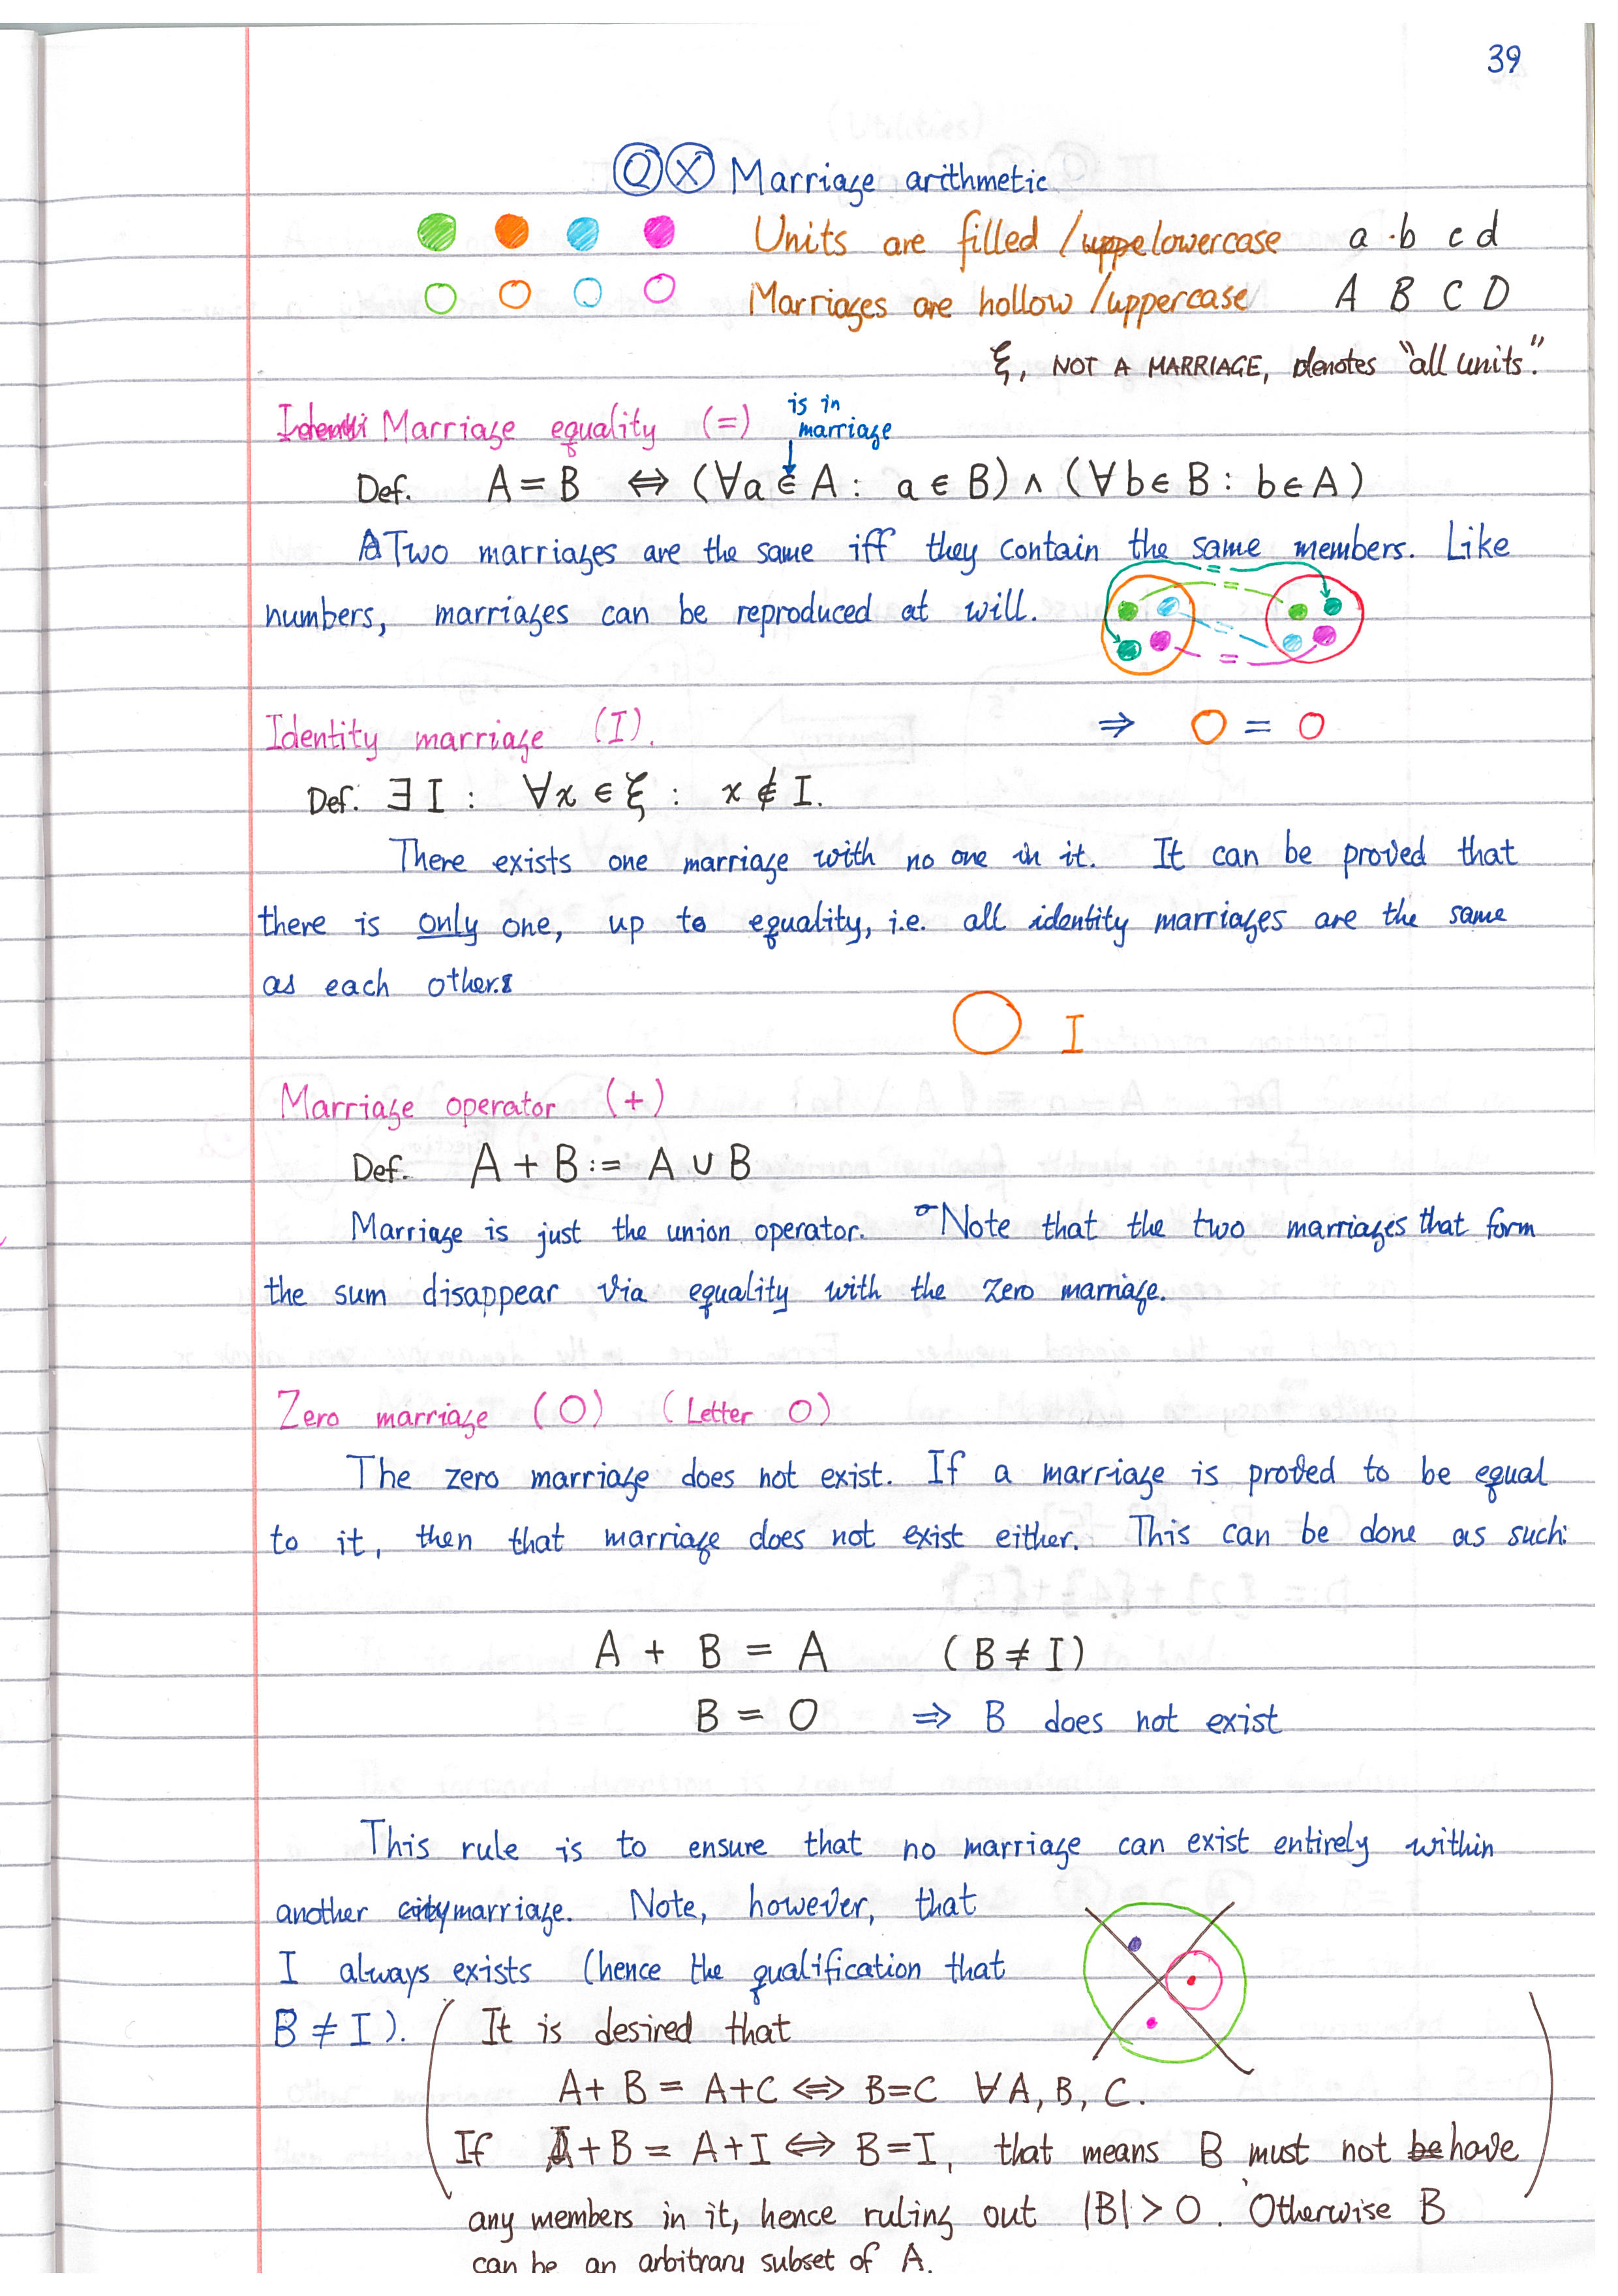 39
Ⓠ Ⓧ Marriage arithmetic
Units are filled / uppelowercase a b c d
Marriages are hollow / uppercase A B C D
ξ, NOT A MARRIAGE, denotes "all units".
Identi Marriage equality (=)
is in
marriage
Def. A = B ⇔ (∀a ∈ A : a ∈ B) ∧ (∀b ∈ B : b ∈ A)
Two marriages are the same iff they contain the same members. Like
numbers, marriages can be reproduced at will.
= = = =
⇒ O = O
Identity marriage (I).
Def. ∃ I : ∀x ∈ ξ : x ∉ I.
There exists one marriage with no one in it. It can be proved that
there is only one, up to equality, i.e. all identity marriages are the same
as each other.
I
Marriage operator (+)
Def. A + B := A ∪ B
Marriage is just the union operator. Note that the two marriages that form
the sum disappear via equality with the zero marriage.
Zero marriage (O) (Letter O)
The zero marriage does not exist. If a marriage is proved to be equal
to it, then that marriage does not exist either. This can be done as such:
A + B = A (B ≠ I)
B = O ⇒ B does not exist
This rule is to ensure that no marriage can exist entirely within
another city marriage. Note, however, that
I always exists (hence the qualification that
B ≠ I). ( It is desired that
A + B = A + C ⇔ B = C ∀ A, B, C.
If A + B = A + I ⇔ B = I, that means B must not be have
any members in it, hence ruling out |B| > 0. Otherwise B
can be an arbitrary subset of A. )